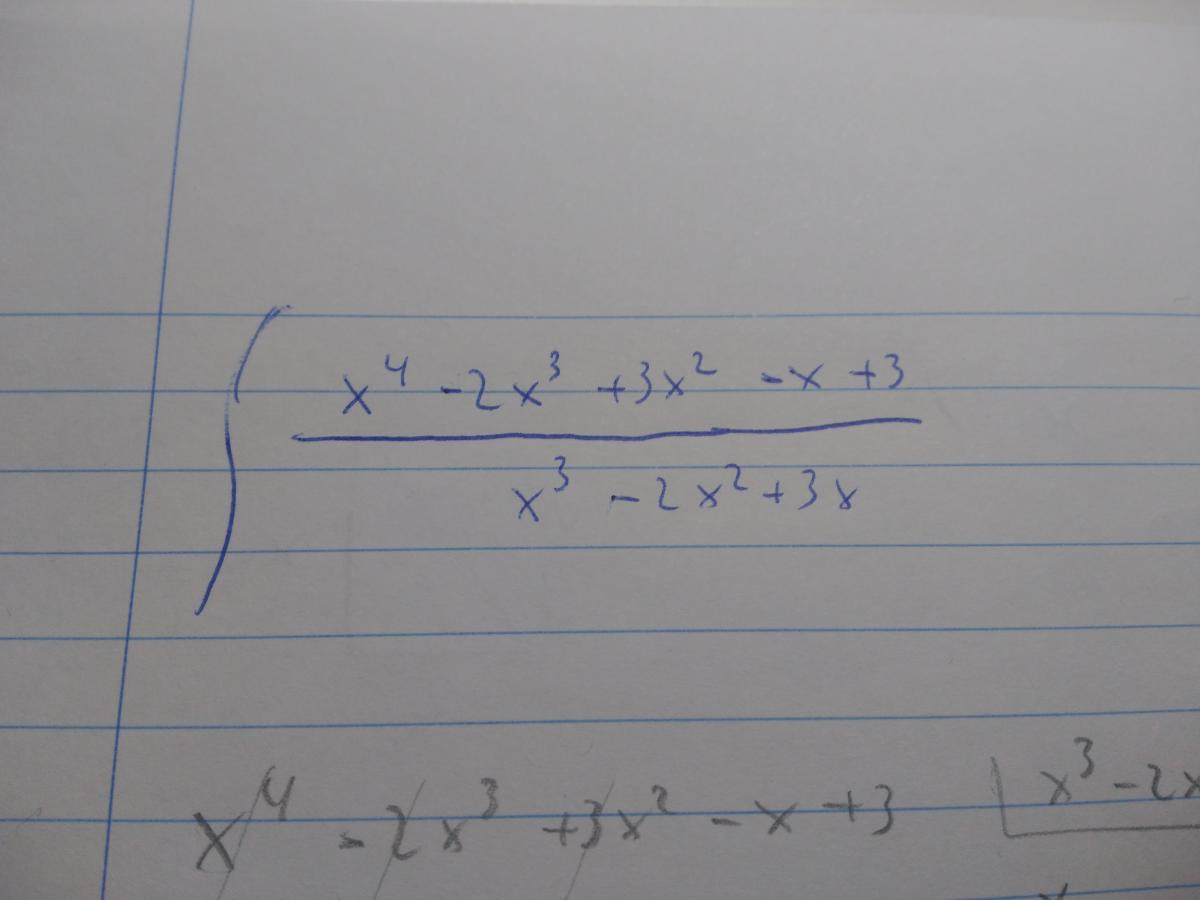 x⁴ -2x³ +3x² -x +3
x³ -2x² +3x
x⁴ -2x³ +3x² -x +3 x³ -2x